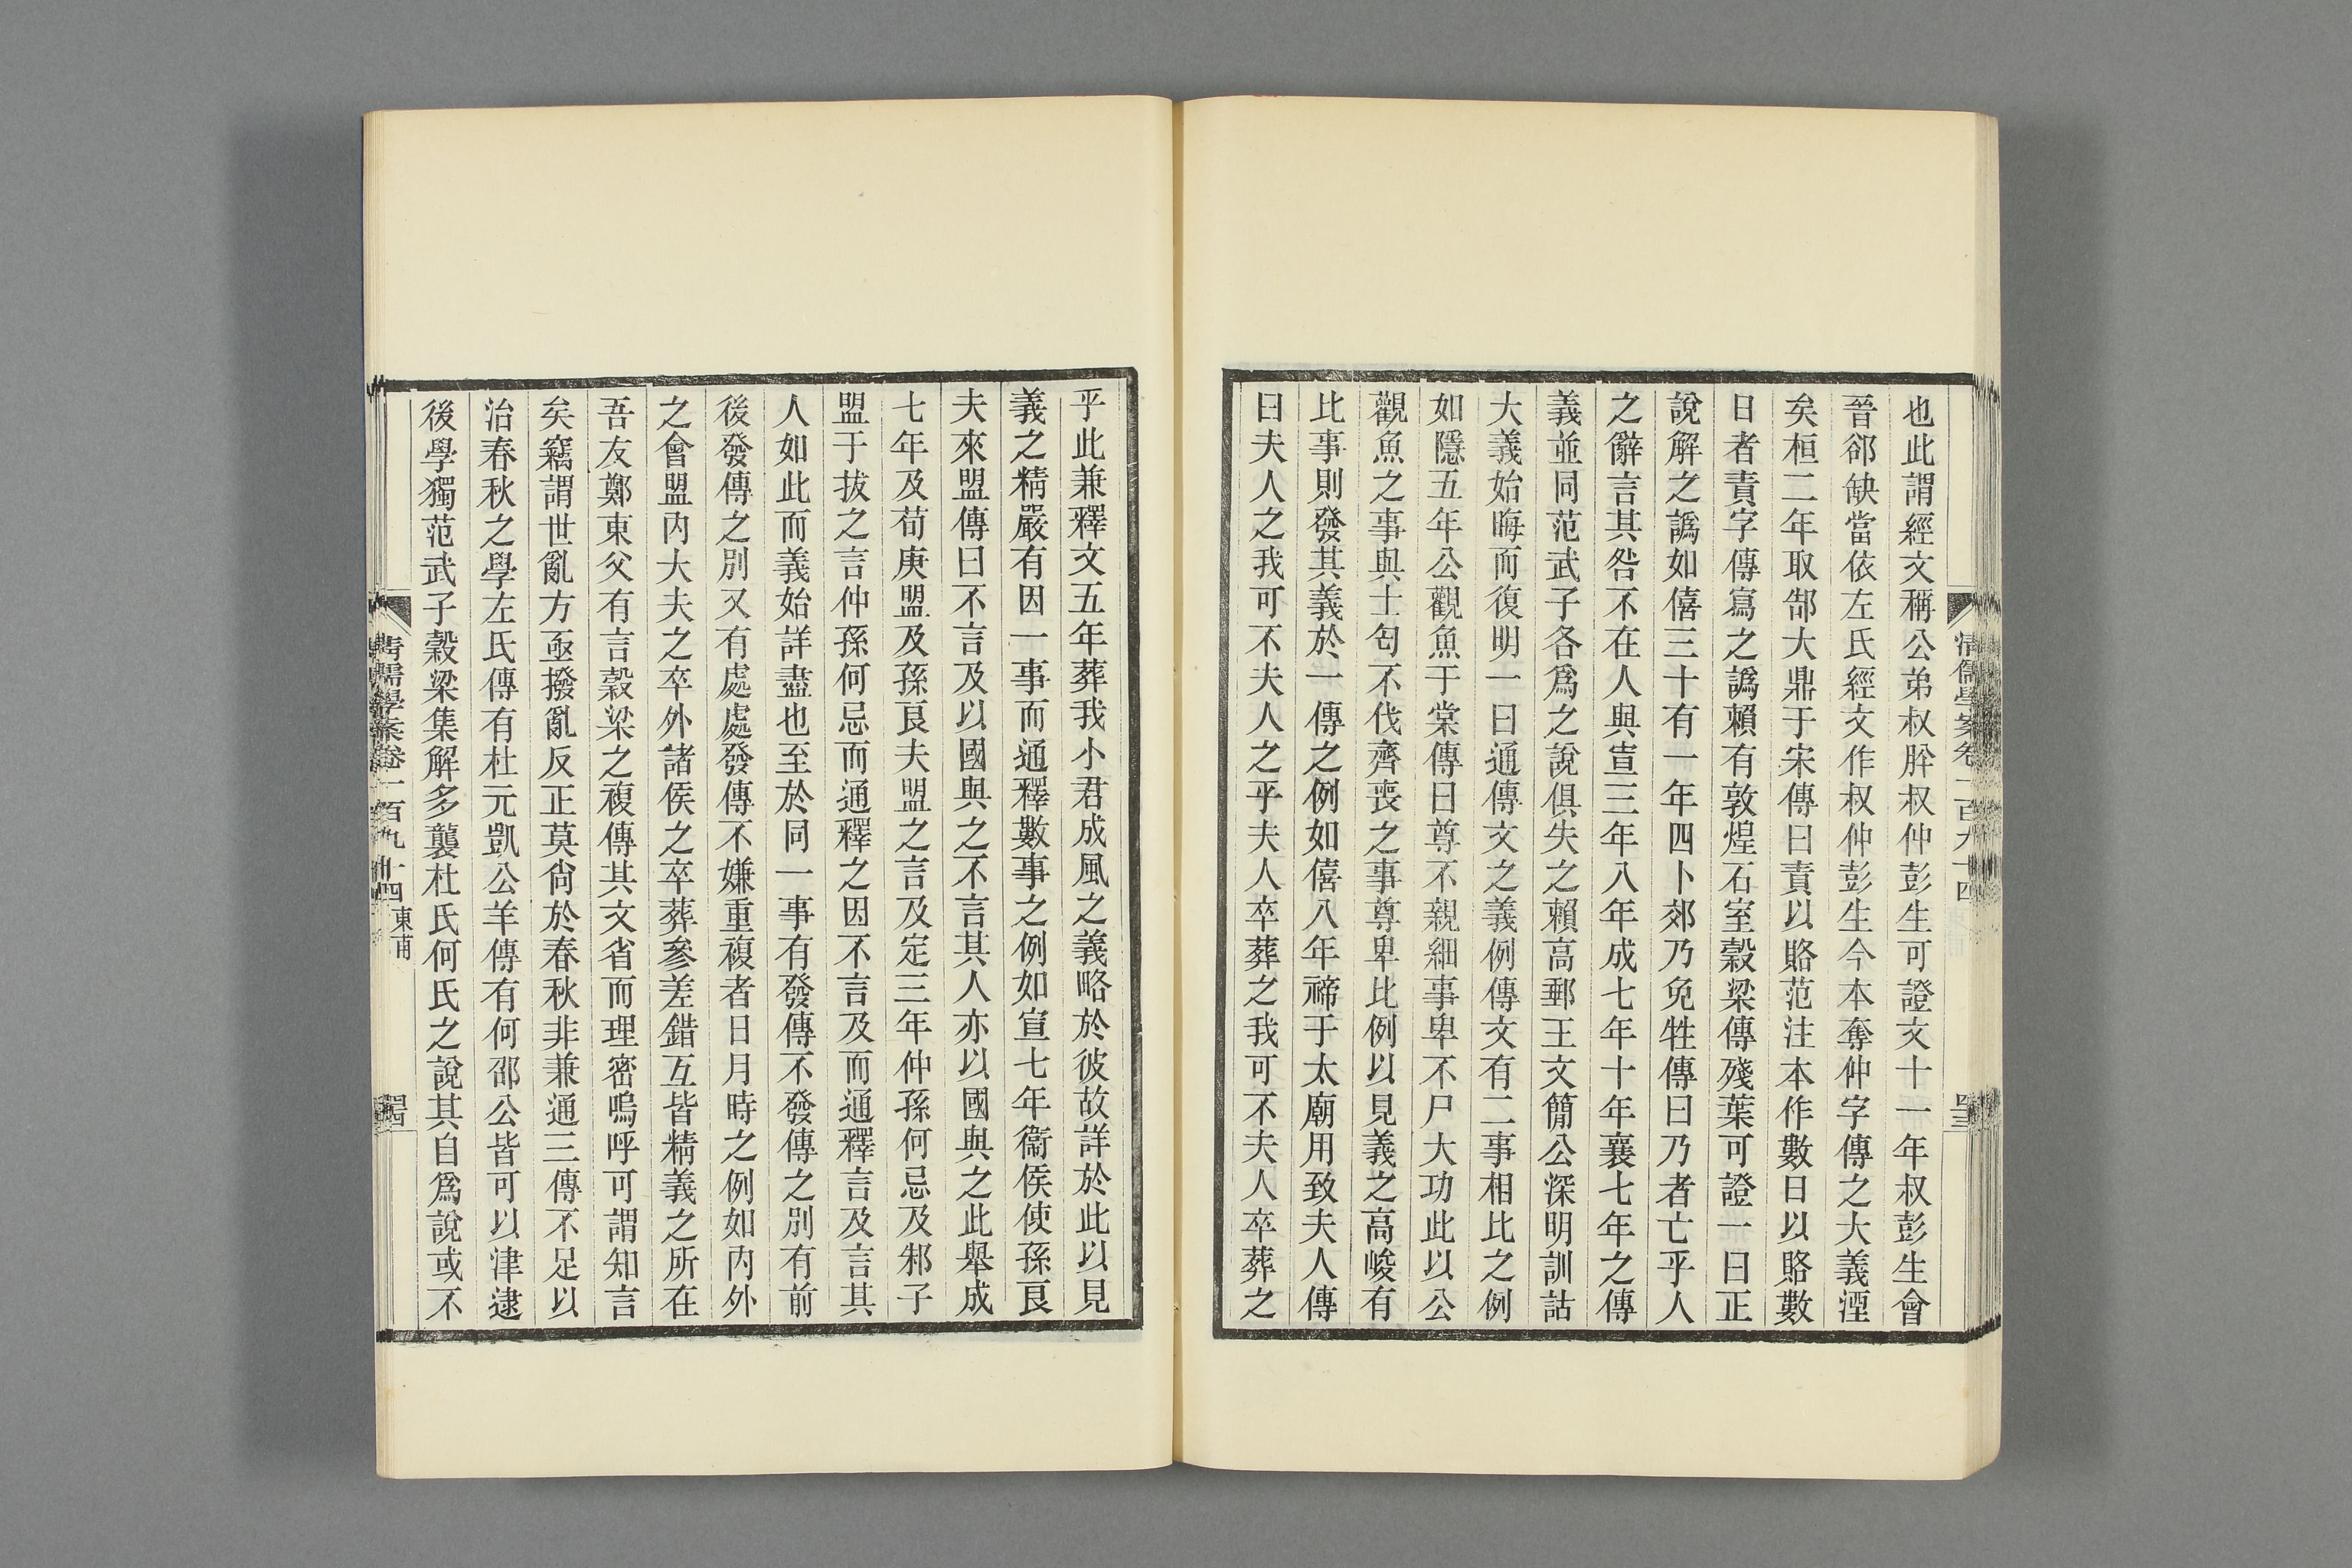 也此謂經文稱公弟叔肸叔仲彭生可證文十一年叔彭生會
晉郤缺當依左氏經文作叔仲彭生今本奪仲字傳之大義湮
矣桓二年取郜大鼎于宋傳曰責以賂范注本作數日以賂數
日者責字傳寫之譌賴有敦煌石室穀梁傳殘葉可證一曰正
說解之譌如僖三十有一年四卜郊乃免牲傳曰乃者亡乎人
之辭言其咎不在人與宣三年八年成七年十年襄七年之傳
義並同范武子各爲之說俱失之賴高郵王文簡公深明訓詁
大義始晦而復明一曰通傳文之義例傳文有二事相比之例
如隱五年公觀魚于棠傳曰尊不親細事卑不尸大功此以公
觀魚之事與士匄不伐齊喪之事尊卑比例以見義之高峻有
比事則發其義於一傳之例如僖八年禘于太廟用致夫人傳
曰夫人之我可不夫人之乎夫人卒葬之我可不夫人卒葬之
清儒學案卷一百九十四
四三
乎此兼釋文五年葬我小君成風之義略於彼故詳於此以見
義之精嚴有因一事而通釋數事之例如宣七年衞侯使孫良
夫來盟傳曰不言及以國與之不言其人亦以國與之此舉成
七年及荀庚盟及孫良夫盟之言及定三年仲孫何忌及邾子
盟于拔之言仲孫何忌而通釋之因不言及而通釋言及言其
人如此而義始詳盡也至於同一事有發傳不發傳之別有前
後發傳之別又有處處發傳不嫌重複者日月時之例如內外
之會盟內大夫之卒外諸侯之卒葬參差錯互皆精義之所在
吾友鄭東父有言穀梁之複傳其文省而理密嗚呼可謂知言
矣竊謂世亂方亟撥亂反正莫尙於春秋非兼通三傳不足以
治春秋之學左氏傳有杜元凱公羊傳有何邵公皆可以津逮
後學獨范武子穀梁集解多襲杜氏何氏之說其自爲說或不
清儒學案卷一百九十四 東甫
四四